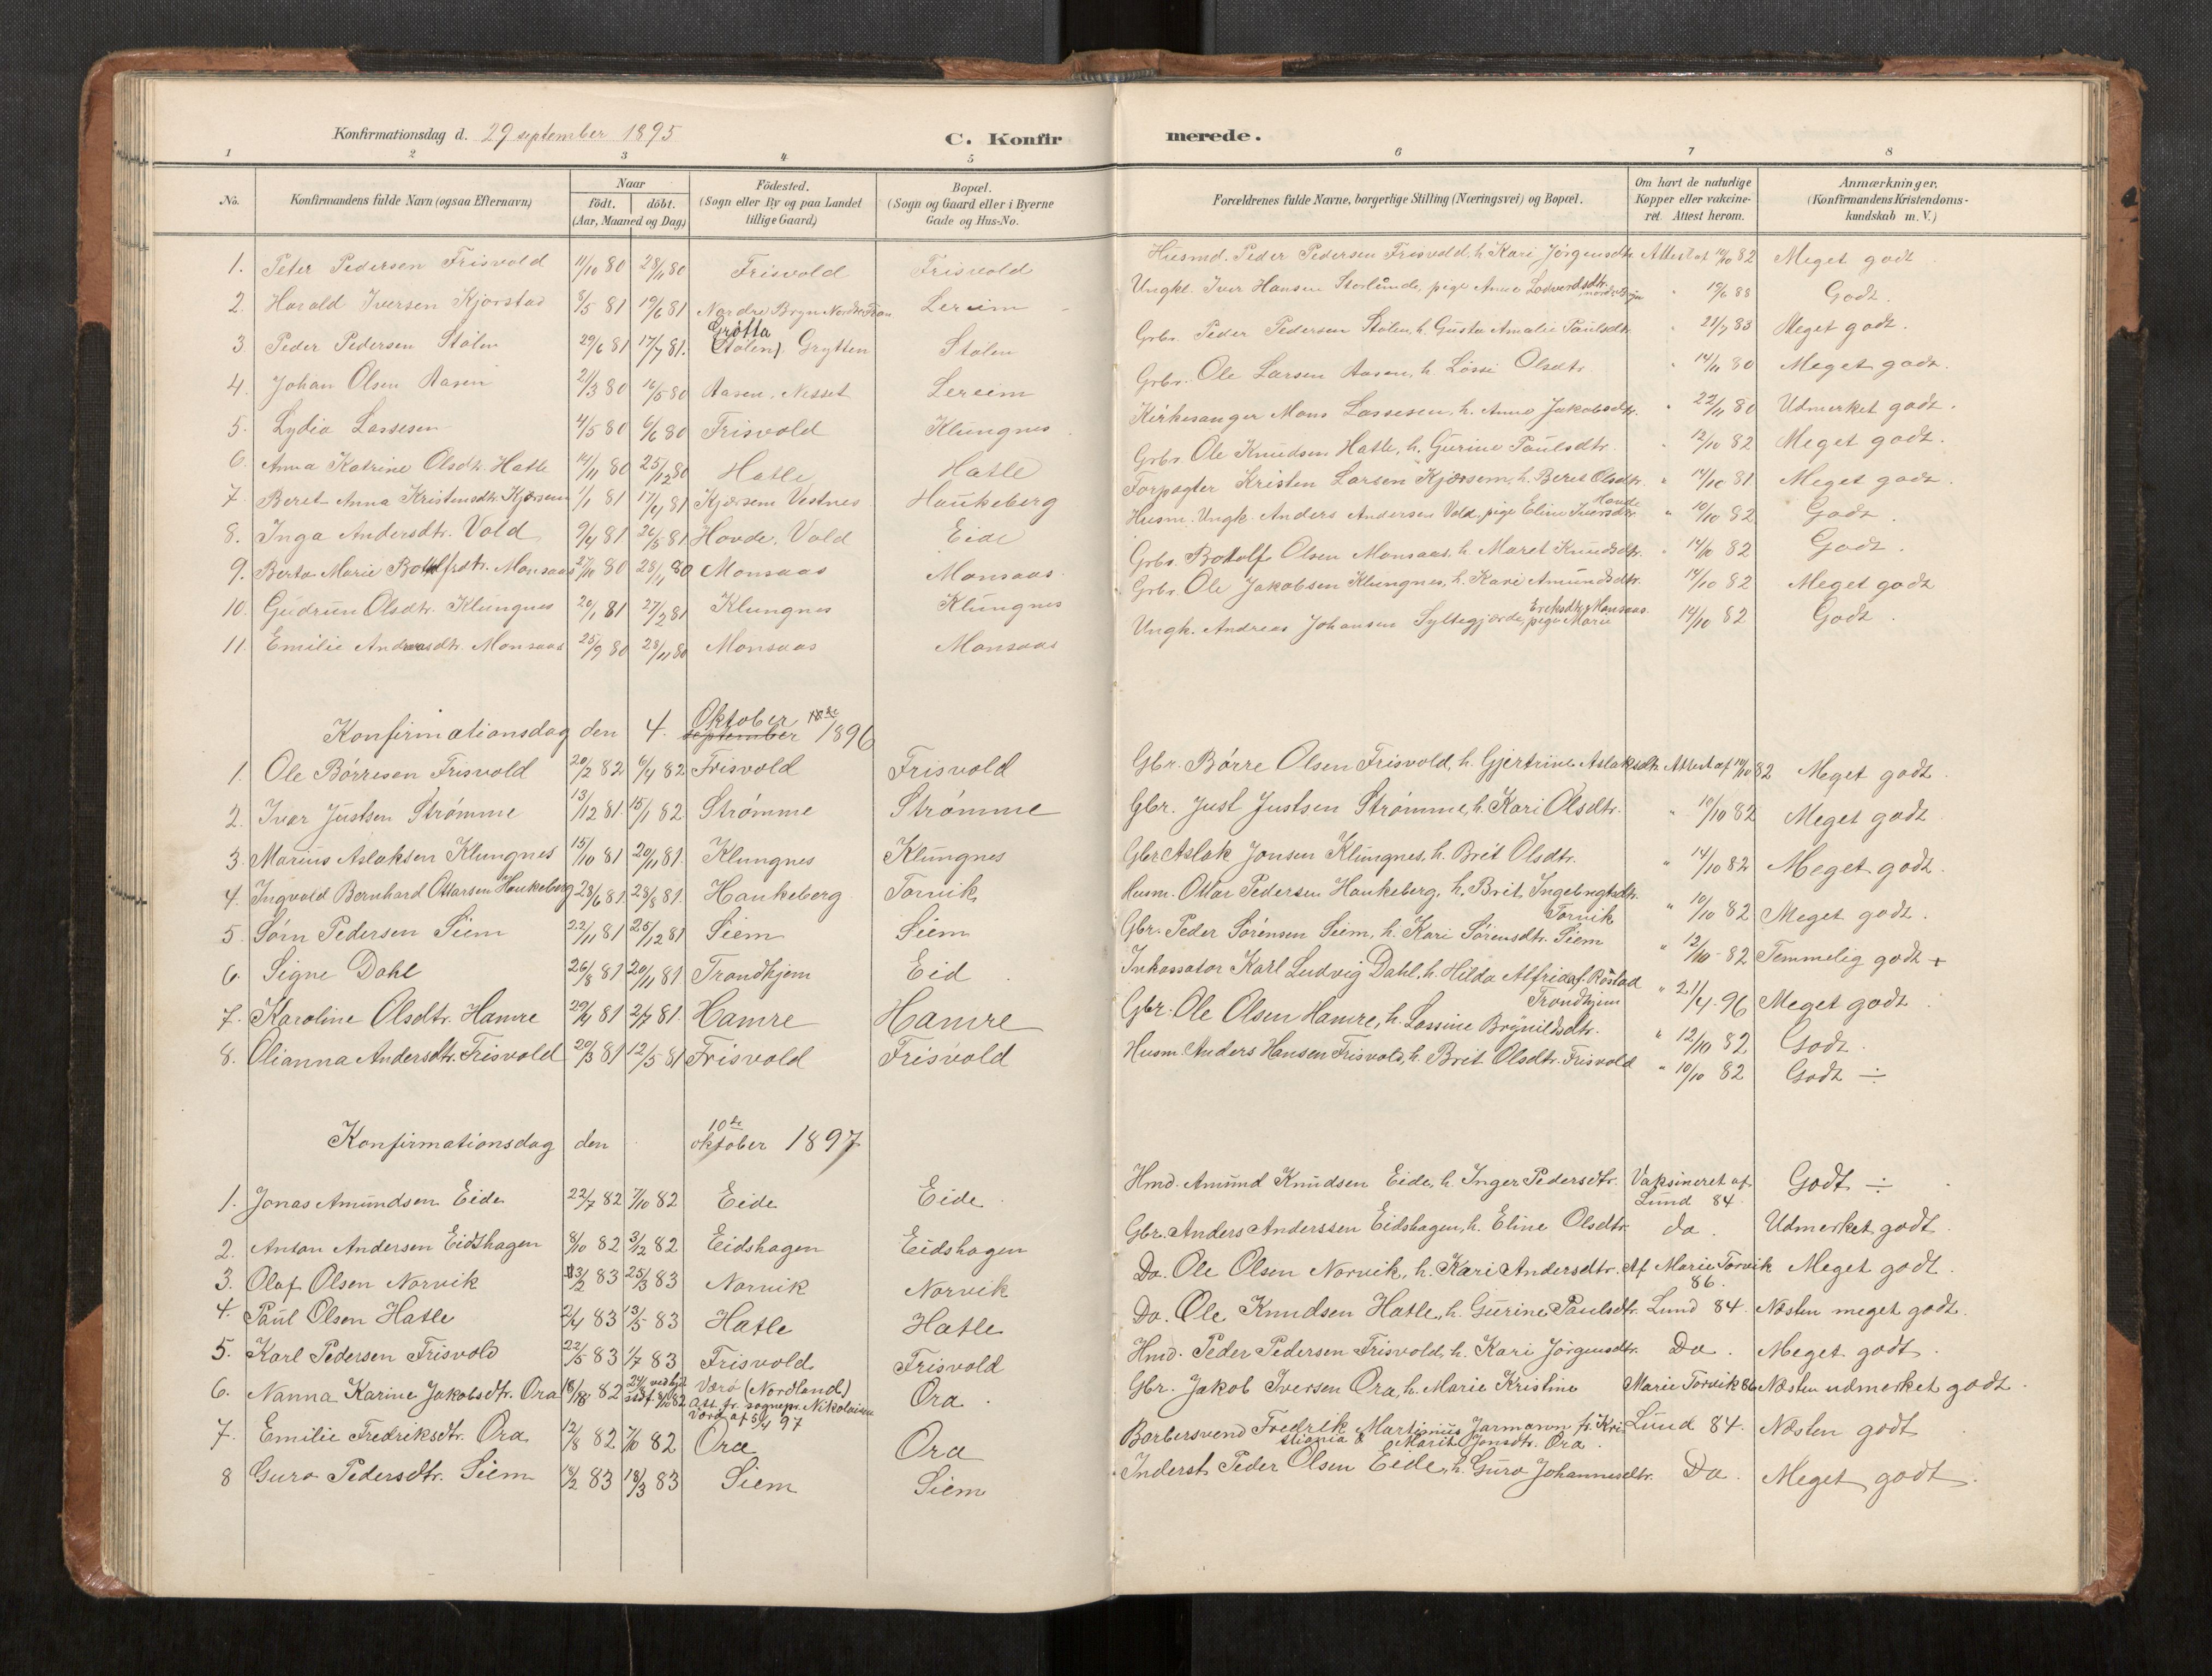 Konfirmationsdag d. 29 september 1895
C. Konfirmerede.
1 2 3 4 5 6 7 8
No.
Konfirmandens fulde Navn (ogsaa Efternavn)
Naar
födt. döbt.
(Aar, Maaned og Dag)
Födested.
(Sogn eller By og paa Landet
tillige Gaard)
Bopæl.
(Sogn og Gaard eller i Byerne
Gade og Hus-No.
Forældrenes fulde Navne, borgerlige Stilling (Næringsvei) og Bopæl.
Om havt de naturlige
Kopper eller vakcine-
ret. Attest herom.
Anmærkninger.
(Konfirmandens Kristendoms-
kundskab m. V.)
1. Peter Pedersen Frisvold 11/10 80 28/11 80 Frisvold Frisvold Husmd. Peder Pedersen Frisvold, h. Kari Jørgensdtr. Attest af 10/10 82 Meget godt
2. Harald Iversen Kjørstad 8/5 81 19/6 81 Nordre Bryn Nordre Fron Lereim Ungkl. Iver Hansen Storlunde, pige Anne " 19/6 88 Godt.
3. Peder Pedersen Stölen 29/6 81 17/7 81. Grøtta (Stölen) Grytten Stölen Grbr. Peder Pedersen Stölen, h. Gusta Amalie Paulsdtr. " 21/7 83 Meget godt.
4. Johan Olsen Aasen 21/3 80 16/5 80 Aasen, Nesset Lereim Grbr. Ole Larsen Aasen, h. Lössi Olsdtr. " 14/11 80 Meget godt.
5. Lydia Lassesen 4/5 80 6/6 80 Frisvold Klungnes Kirkesanger Mons Lassesen, h. Anne Jakobsdtr. " 22/11 80 Udmerket godt.
6. Anna Katrine Olsdtr. Hatle 14/11 80 25/12 80 Hatle Hatle Grbr. Ole Knudsen Hatle, h. Gurine Paulsdtr. " 12/10 82 Meget godt.
7. Beret Anna Kristensdtr. Kjørsem 1/1 81 17/4 81 Kjørsem Vestnes Haukeberg Forpagter Kristen Larsen Kjørsem, h. Beret Olsdtr. " 14/10 81 Meget godt.
8. Inga Andersdtr. Vold 9/4 81 26/5 81 Hovde, Vold Eide Husm. Ungk. Anders Andersen Vold, pige Eline Iversdtr. " 10/10 82 Godt.
9. Berta Marie Botolfsdtr. Monsaas 27/10 80 28/11 80 Monsaas Monsaas Grbr. Botolf Olsen Monsaas, h. Maret Knudsdtr. " 14/10 82 Godt.
10. Gudrun Olsdtr. Klungnes 20/1 81 27/2 81 Klungnes Klungnes Grbr. Ole Jakobsen Klungnes, h. Kari Amundsdtr. 14/10 82 Meget godt
11. Emilie Andreasdtr. Monsaas 25/9 80 28/11 80 Monsaas Monsaas Ungk. Andreas Johansen Syltegjørde, pige Marie Ereksdtr. Monsaas. 14/10 82 Godt.
Konfirmationsdag den 4. Oktober september 1896
1. Ole Børresen Frisvold 20/2 82 6/4 82 Frisvold Frisvold Gbr. Børre Olsen Frisvold, h. Gjertrine Aslaksdtr. Attest af 10/10 82 Meget godt.
2. Ivar Justsen Strømme 13/12 81. 15/1 82. Strømme Strømme Gbr. Just Justsen Strømme, h. Kari Olsdtr. " 10/10 82 Meget godt
3. Marius Aslaksen Klungnes 15/10 81 20/11 81. Klungnes Klungnes Gbr. Aslak Jonsen Klungnes, h. Brit Olsdtr. " 14/10 82 Meget godt.
4. Ingvald Bernhard Ottarsen Haukeberg 28/6 81. 28/8 81. Haukeberg Torvik Husm. Ottar Pedersen Haukeberg, h. Brit Ingebrigtsdtr. Torvik " 10/10 82 Meget godt.
5. Sørn Pedersen Siem 22/11 81 25/12 81 Siem Siem Gbr. Peder Sørensen Siem, h. Kari Sørensdtr. Siem " 12/10 82 Temmelig godt +
6. Signe Dahl 26/8 81 20/11 81 Trondhjem Eid. Inkassator Karl Ludvig Dahl, h. Hilda Alfrida f. Röstad Trondhjem " 21/4 96 Meget godt.
7. Karoline Olsdtr. Hamre 29/4 81 2/7 81. Hamre Hamre Gbr. Ole Olsen Hamre, h. Lassine Brynildsdtr. " 12/10 82 Godt.
8. Olianna Andersdtr. Frisvold 20/3 81 12/5 81 Frisvold Frisvold Husm. Anders Hansen Frisvold, h. Brit Olsdtr. Frisvold " 10/10 82 Godt ÷
Konfirmationsdag den 10de oktober 1897
1. Jonas Amundsen Eide 22/7 82 7/10 82 Eide Eide. Hmd. Amund Knudsen Eide, h. Inger Pedersdtr. Vaksineret af Lund 84. Godt ÷
2. Anton Andersen Eidshagen 8/10 82 3/12 82 Eidshagen Eidshagen Gbr. Anders Anderssen Eidshagen, h. Eline Olsdtr. da. Udmerket godt.
3. Olaf Olsen Norvik 13/2 83 25/3 83 Norvik Norvik Do. Ole Olsen Norvik, h. Kari Andersdtr. Af Marie Torvik 86. Meget godt.
4. Paul Olsen Hatle 2/4 83 13/5 83 Hatle Hatle Do. Ole Knudsen Hatle, h. Gurine Paulsdtr. Lund 84. Næsten meget godt.
5. Karl Pedersen Frisvold 22/5 83 1/7 83 Frisvold Frisvold Hmd. Peder Pedersen Frisvold, h. Kari Jörgensdtr. Do. Meget godt.
6. Nanna Karine Jakobsdtr. Ora 18/8 82 stdf. 8/10 82 Værö (Nordland) Att. fr. sognepr. Nikolaisen Værö af 5/4 97 Ora. Gbr. Jakob Iversen Ora, h. Marie Kristine Marie Torvik 86 Næsten udmerket godt.
7. Emilie Fredriksdtr. Ora 12/8 82 7/10 82 Ora Ora Barbersvend Fredrik Martinius Jarmann fr. Kristiania & Marit Jonsdtr. Ora. Lund 84. Næsten godt
8 Guro Pedersdtr. Siem 18/2 83 18/3 83 Siem Siem Inderst Peder Olsen Eide, h. Guro Johannesdtr. Do. Meget godt.